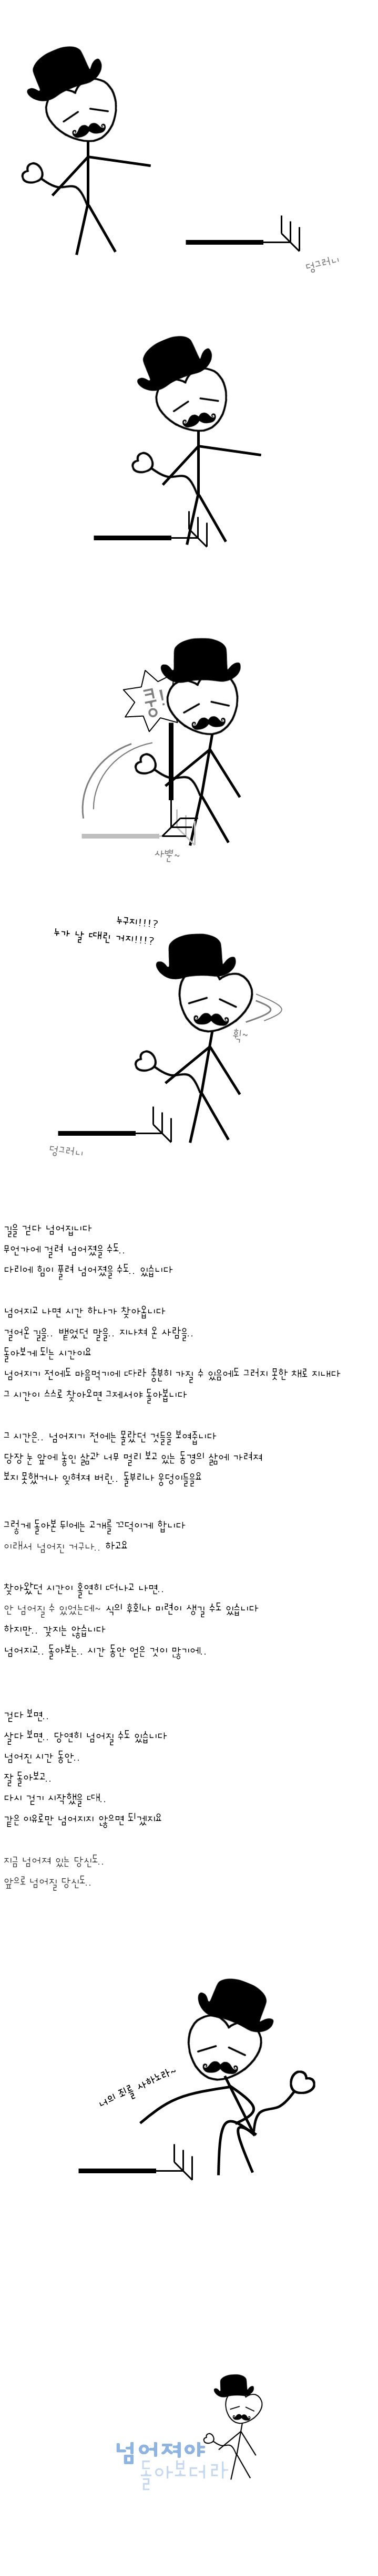 덩그러니
캉!
사뿐~
누구지!!!?
누가 날 때린 거지!!!?
휙~
덩그러니
길을 걷다 넘어집니다
무언가에 걸려 넘어졌을 수도..
다리에 힘이 풀려 넘어졌을 수도.. 있습니다
넘어지고 나면 시간 하나가 찾아옵니다
걸어온 길을.. 뱉었던 말을.. 지나쳐 온 사람을..
돌아보게 되는 시간이요
넘어지기 전에도 마음먹기에 따라 충분히 가질 수 있음에도 그러지 못한 채로 지내다
그 시간이 스스로 찾아오면 그제서야 돌아봅니다
그 시간은.. 넘어지기 전에는 몰랐던 것들을 보여줍니다
당장 눈 앞에 놓인 삶과 너무 멀리 보고 있는 동경의 삶에 가려져
보지 못했거나 잊혀져 버린.. 돌부리나 웅덩이들을요
그렇게 돌아본 뒤에는 고개를 끄덕이게 합니다
이래서 넘어진 거구나.. 하고요
찾아왔던 시간이 홀연히 떠나고 나면..
안 넘어질 수 있었는데~ 식의 후회나 미련이 생길 수도 있습니다
하지만.. 갖지는 않습니다
넘어지고.. 돌아보는.. 시간 동안 얻은 것이 많기에..
걷다 보면..
살다 보면.. 당연히 넘어질 수도 있습니다
넘어진 시간 동안..
잘 돌아보고..
다시 걷기 시작했을 때..
같은 이유로만 넘어지지 않으면 되겠지요
지금 넘어져 있는 당신도..
앞으로 넘어질 당신도..
너의 죄를 사하노라~
넘어져야
돌아보더라